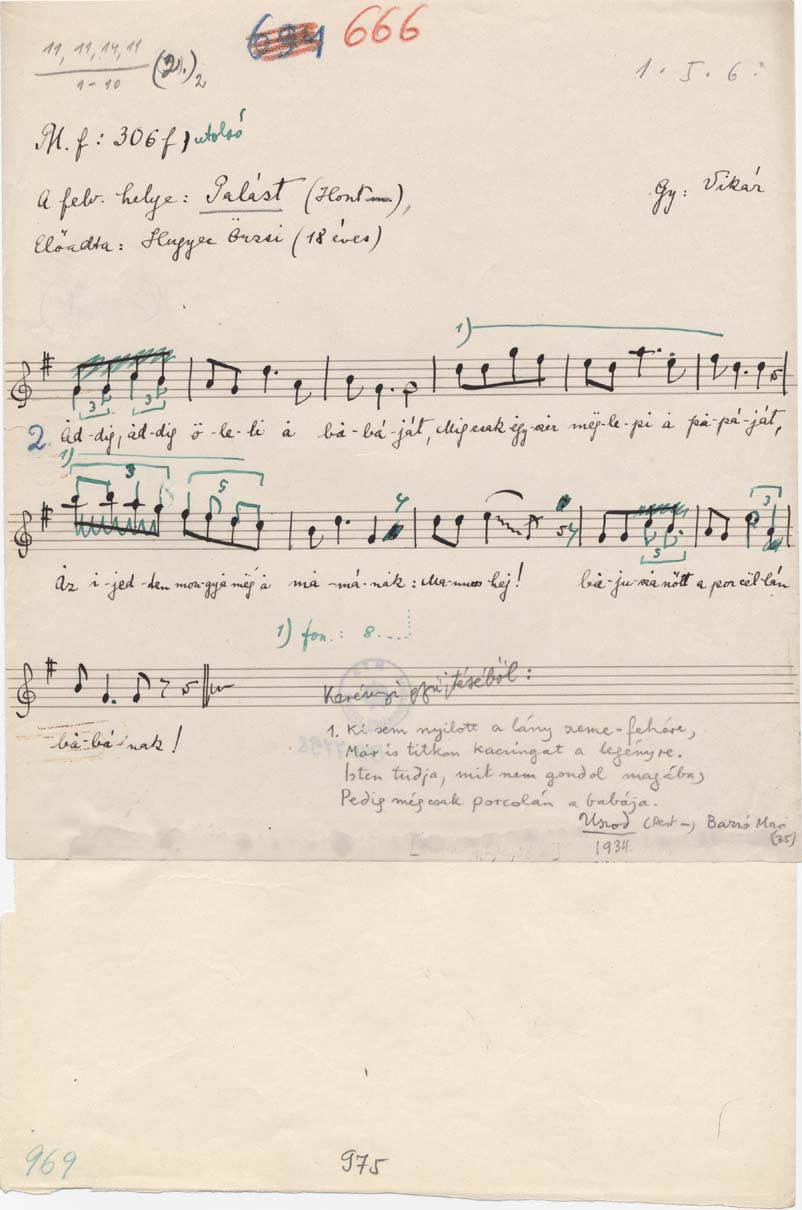 666
11, 11, 14, 11
1-10
(2.)2
1. I. 6.
M. f: 306f) utolsó
A felv. helye: Palást (Hont —),
Gy: Vikár
Előadta: Hugyec Örzsi (18 éves)
1)
3 3
2. Ad-dig, ád-dig ö-le-li á bá-bá-ját, Míg csak égy-szër mëg-le-pi á pá-pá-ját,
1)
3 5
Áz i-jed-tën mon-gyá még á má-má-nák: Má- -hej! bá-ju-sza nőtt a por-cël-lán
5 3
1) fon.: 8.....
bá-bá-nak!
Kerényi gyűjtéséből:
1. Ki sem nyilott a lány szeme-fehére,
Már is titkon kacsingat a legényre.
Isten tudja, mit nem gondol magába,
Pedig mégcsak porcolán a babája.
(Pest —) Mari
(35)
1934.
969
975